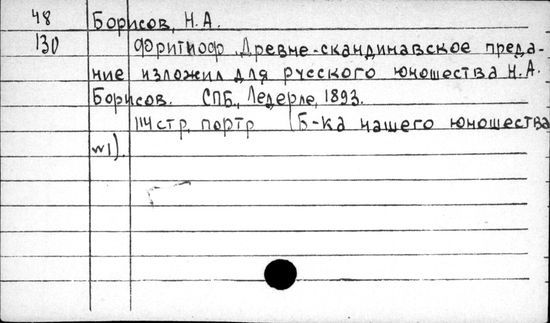 48 Борисов, Н.А.
130 Фритиоф. Древне-скандинавское преда-
ние изложил для русского юношества Н.А.
Борисов. СПБ., Ледерле, 1893.
114 стр, портр (Б-ка нашего юношества
№1).